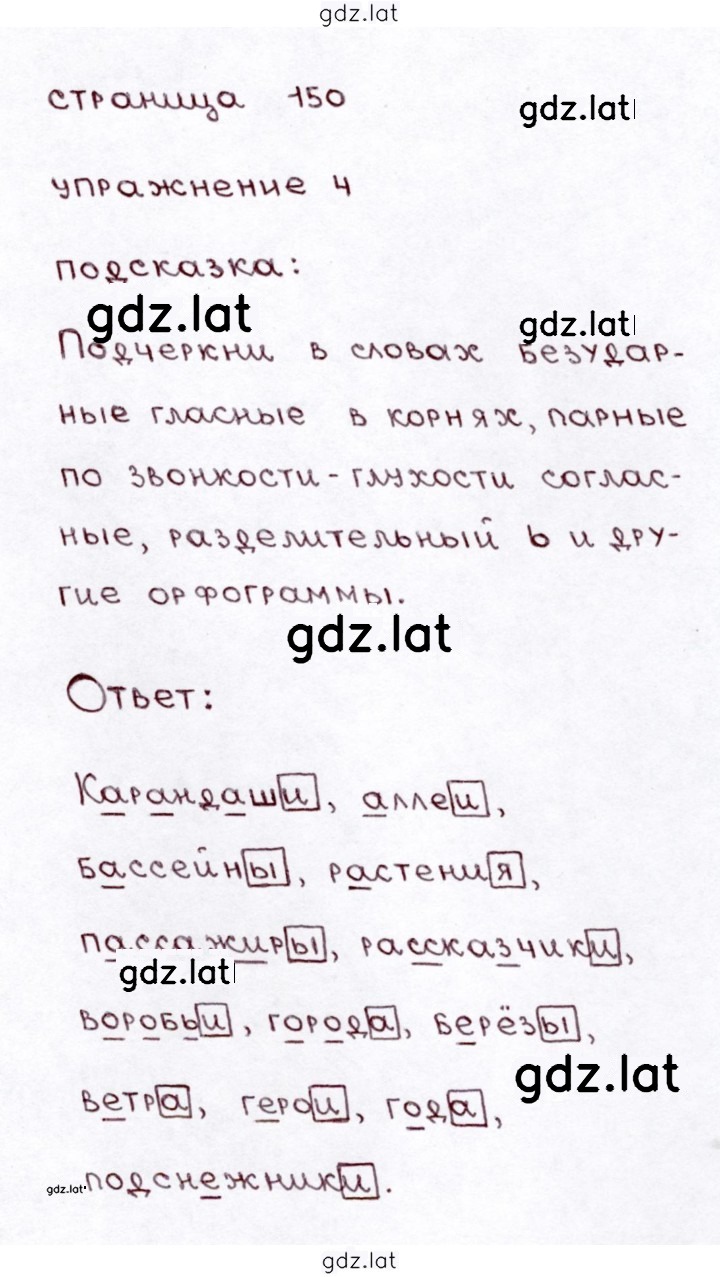 gdz.lat
страница 150
gdz.lat
упражнение 4
подсказка:
gdz.lat
gdz.lat
Подчеркни в словах безудар-
ные гласные в корнях, парные
по звонкости-глухости соглас-
ные, разделительный ь и дру-
гие орфограммы.
gdz.lat
Ответ:
Карандаши, аллеи,
бассейны, растения,
пассажиры, рассказчики,
gdz.lat
воробьи, города, берёзы,
gdz.lat
ветра, герои, года,
gdz.lat
подснежники.
gdz.lat